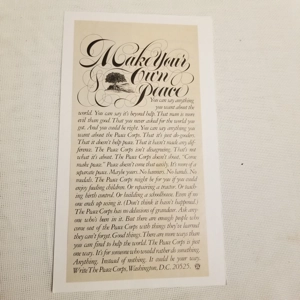 Make Your
Own
Peace
You can say anything
you want about the
world. You can say it's beyond help. That man is more
evil than good. That you never asked for the world you
got. And you could be right. You can say anything you
want about the Peace Corps. That it's just do-gooders.
That it doesn't help peace. That it hasn't made any dif-
ference. The Peace Corps isn't disagreeing. That's not
what it's about. The Peace Corps doesn't shout, "Come
make peace." Peace doesn't come that easily. It's more of a
separate peace. Maybe yours. No banners. No bands. No
medals. The Peace Corps might be for you if you could
enjoy feeding children. Or repairing a tractor. Or teach-
ing birth control. Or building a schoolroom. Even if no
one ends up using it. (Don't think it hasn't happened.)
The Peace Corps has no delusions of grandeur. Ask any-
one who's been in it. But there are enough people who
come out of the Peace Corps with things they've learned
they can't forget. Good things. There are more ways than
you can find to help the world. The Peace Corps is just
one way. It's for someone who would rather do something.
Anything. Instead of nothing. It could be your way.
Write The Peace Corps, Washington, D.C. 20525.